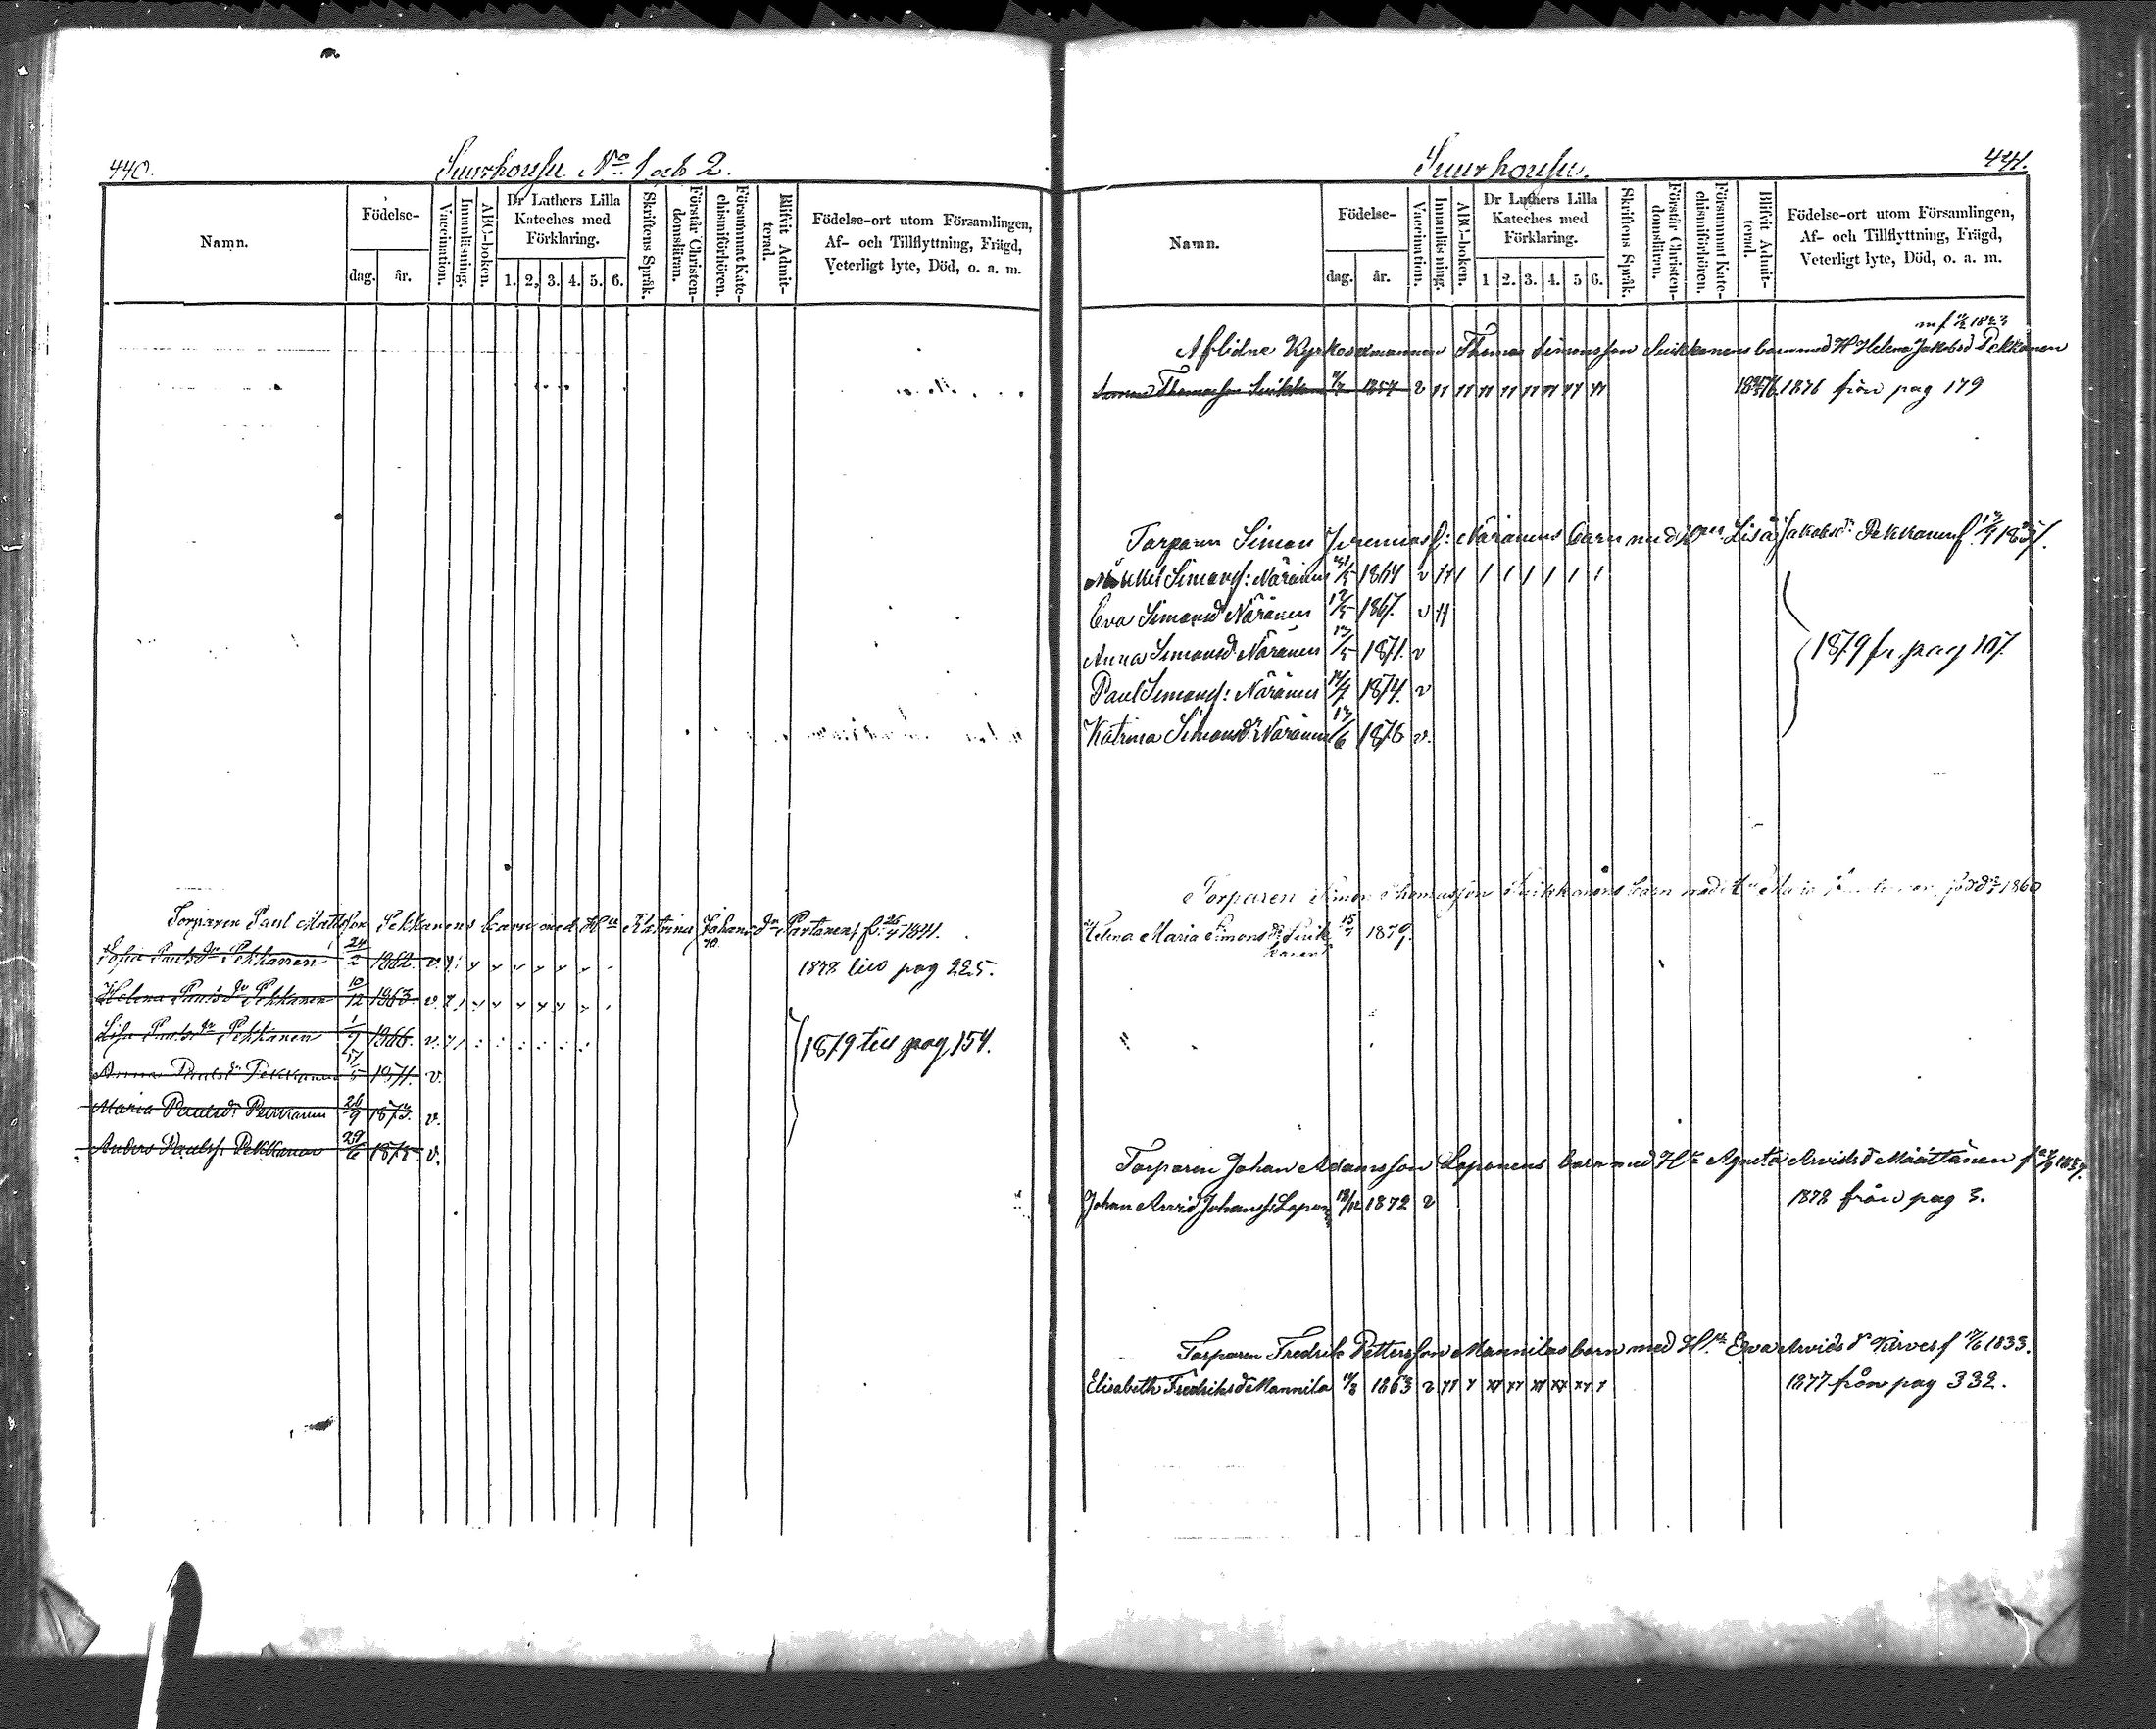 440.
Suurhousu No 1 och 2.
Namn.
Födelse-
dag.
år.
Vaccination.
Innanläsning.
ABC-boken.
Dr Luthers Lilla
Kateches med
Förklaring.
1. 2. 3. 4. 5. 6.
Skriftens Språk.
Förstår Christen-
domsläran.
Försummat Kate-
chismiförhören.
Blifvit Admit-
terad.
Födelse-ort utom Församlingen,
Af- och Tillflyttning, Frägd,
Veterligt lyte, Död, o. a. m.
Torparen Paul Mattsson Pekkanens barn med Hu Katrina Johansdr Partanen, f. 26/4 1841.
Sofia Paulsdr Pekkanen 24/2 1862. v. 1878 till pag 225.
Helena Paulsdr Pekkanen 10/12 1863. v.
Lisa Paulsdr Pekkanen 1/7 1866. v. 1879 till pag. 154.
Anna Paulsdr Pekkanen 1871. v.
Maria Paulsdr Pekkanen 26/9 1873. v.
Anders Paulsf. Pekkanen 29/6 1878 v.
441.
Suurhousu.
Namn.
Födelse-
dag.
år.
Vaccination.
Innanläsning.
ABC-boken.
Dr Luthers Lilla
Kateches med
Förklaring.
1 2. 3. 4. 5 6.
Skriftens Språk.
Förstår Christen-
domsläran.
Försummat Kate-
chismiförhören.
Blifvit Admit-
terad.
Födelse-ort utom Församlingen,
Af- och Tillflyttning, Frägd,
Veterligt lyte, Död, o. a. m.
1823
Aflidne Kyrkovermannen Thomas Simonsson Suikkanens barn med H Helena Jakobsd Pekkanen
Simon Thomasson Suikkanen 1857 v 1876 från pag 179
Torparen Simon Jeremiasf: Näränens barn med Hu Lisa Jakobsdr Pekkanen f.
Mikkel Simonsf: Näränen 1864 v
Eva Simonsd Näränen 12/5 1867. v
Anna Simonsd. Näränen 13/5 1871. v 1879 fr. pag 107.
Paul Simonsf: Näränen 1874. v
Katrina Simonsdr Näränen 13/6 1878 v.
Torparen Simon Thomasson Suikkanens barn med Hu Maria född 1860
Helena Maria Simonsdr Suik- 15/7 1879.
kanen
Torparen Johan Adamsson Loponens barn med Hu Agneta Arvidsd Määttänen f 1837.
Johan Arvid Johansf: Lopon 13/12 1872 v 1878 från pag 3.
Torparen Fredrik Pettersson Mannilas barn med Hu Eva Arvidsdr Kirves f 1833.
Elisabeth Fredriksd Mannila 1863 v 1877 från pag 332.